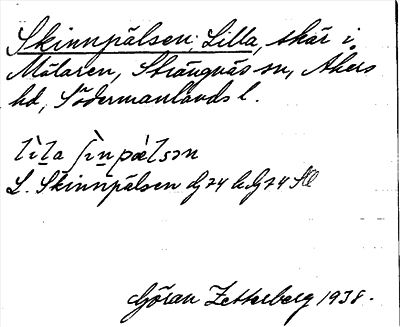 Skinnpälsen, Lilla, skär i
Mälaren, Strängnäs sn, Åkers
hd, Södermanlands l.
lìla ʃìnpælsɔn
L. Skinnpälsen G 74 h G 74 SO
Göran Zetterberg 1938.